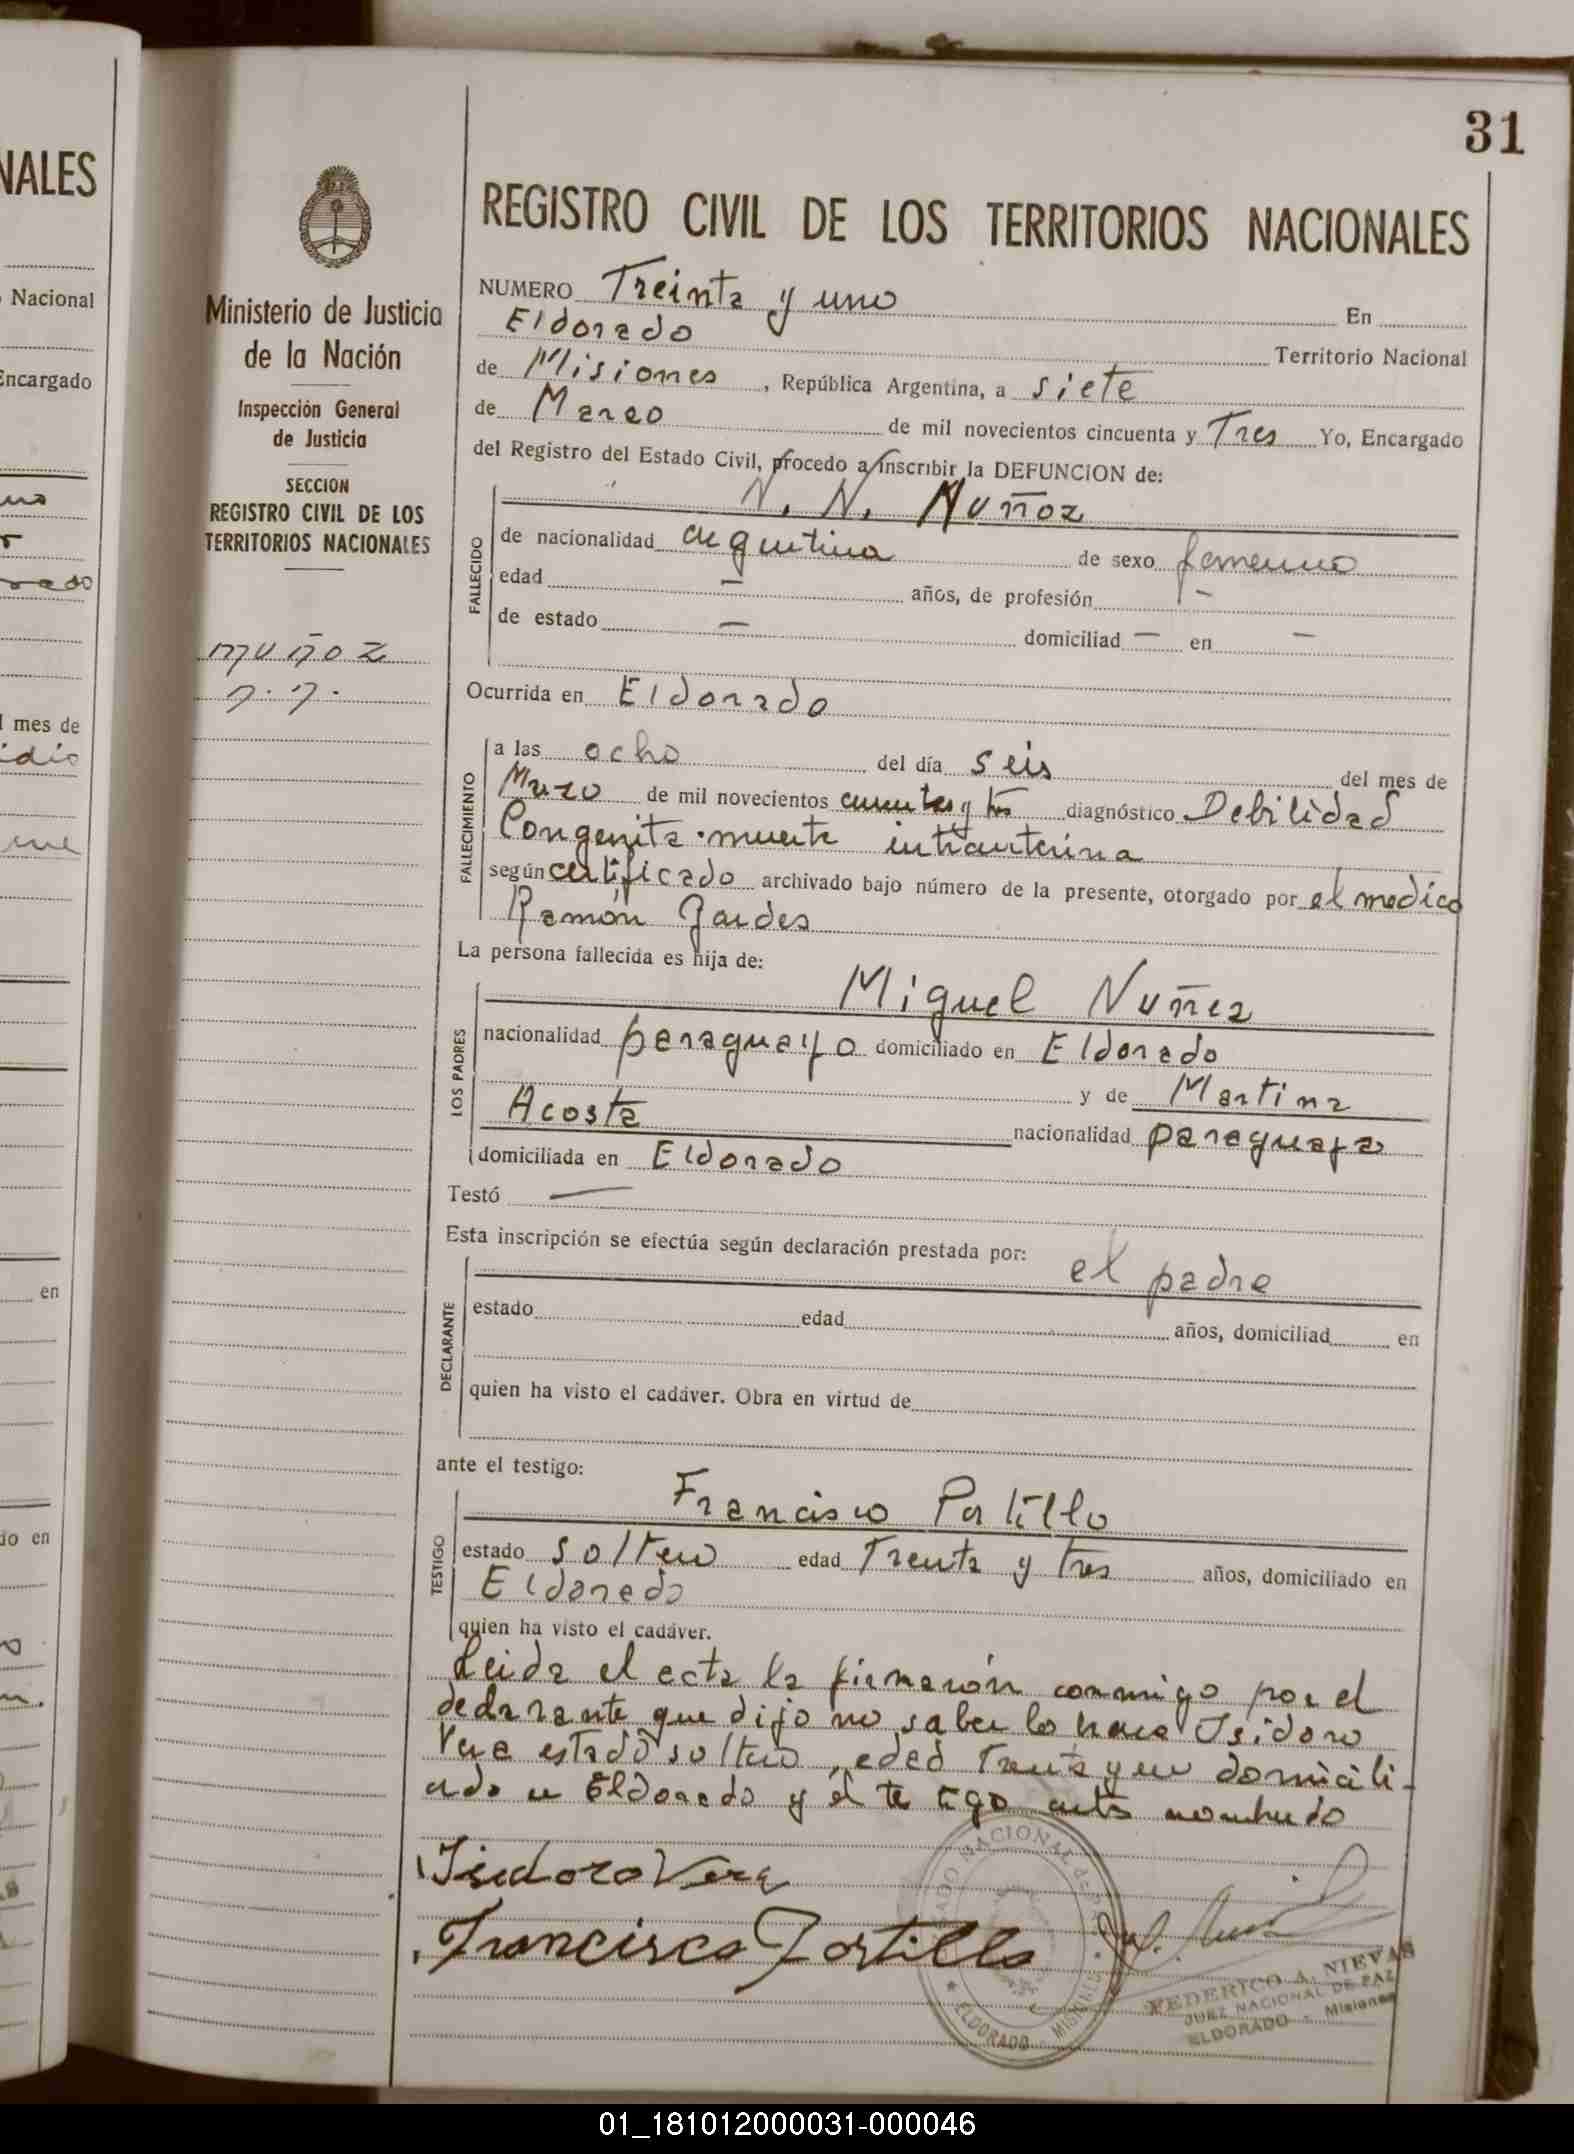 31
REGISTRO CIVIL DE LOS TERRITORIOS NACIONALES
Ministerio de Justicia
de la Nación
Inspección General
de Justicia
SECCION
REGISTRO CIVIL DE LOS
TERRITORIOS NACIONALES
Muñoz
N. N.
NUMERO Treinta y uno En
Eldorado Territorio Nacional
de Misiones, República Argentina, a siete
de Marzo de mil novecientos cincuenta y Tres Yo, Encargado
del Registro del Estado Civil, procedo a inscribir la DEFUNCION de:
N. N. Muñoz
FALLECIDO
de nacionalidad argentina de sexo femenino
edad — años, de profesión —
de estado — domiciliad — en —
Ocurrida en Eldorado
FALLECIMIENTO
a las ocho del día seis del mes de
Marzo de mil novecientos cincuenta y tres diagnóstico Debilidad
Congenita. muerte intrauterina
según certificado archivado bajo número de la presente, otorgado por el medico
Ramón
La persona fallecida es hija de:
Miguel Nuñez
LOS PADRES
nacionalidad paraguayo domiciliado en Eldorado
y de Martina
Acosta nacionalidad paraguaya
domiciliada en Eldorado
Testó —
Esta inscripción se efectúa según declaración prestada por:
el padre
DECLARANTE
estado edad años, domiciliad en
quien ha visto el cadáver. Obra en virtud de
ante el testigo:
Francisco Portillo
TESTIGO
estado soltero edad Treinta y tres años, domiciliado en
Eldorado
quien ha visto el cadáver.
Leida el acta la firmarón conmigo por el
declarante que dijo no saber lo hace Isidoro
Vera estado soltero, edad Treinta y un domicili-
ado en Eldorado y el testigo antes nombrado
Isidoro Vera
Francisco Portillo
ELDORADO - MISIONES
FEDERICO A. NIEVAS
JUEZ NACIONAL DE PAZ
ELDORADO - Misiones
NALES
Nacional
Encargado
mes de
en
do en
01_181012000031-000046